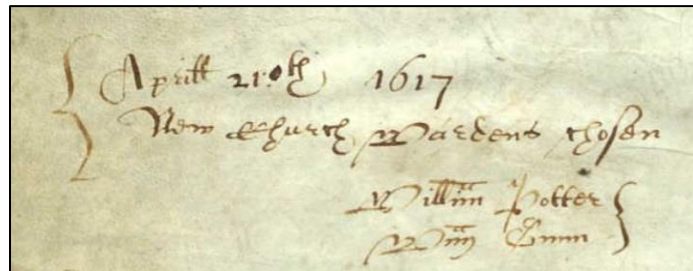 Aprill 21.oth 1617
New Church Wardens chosen
Willim Potter
Wm Gunn